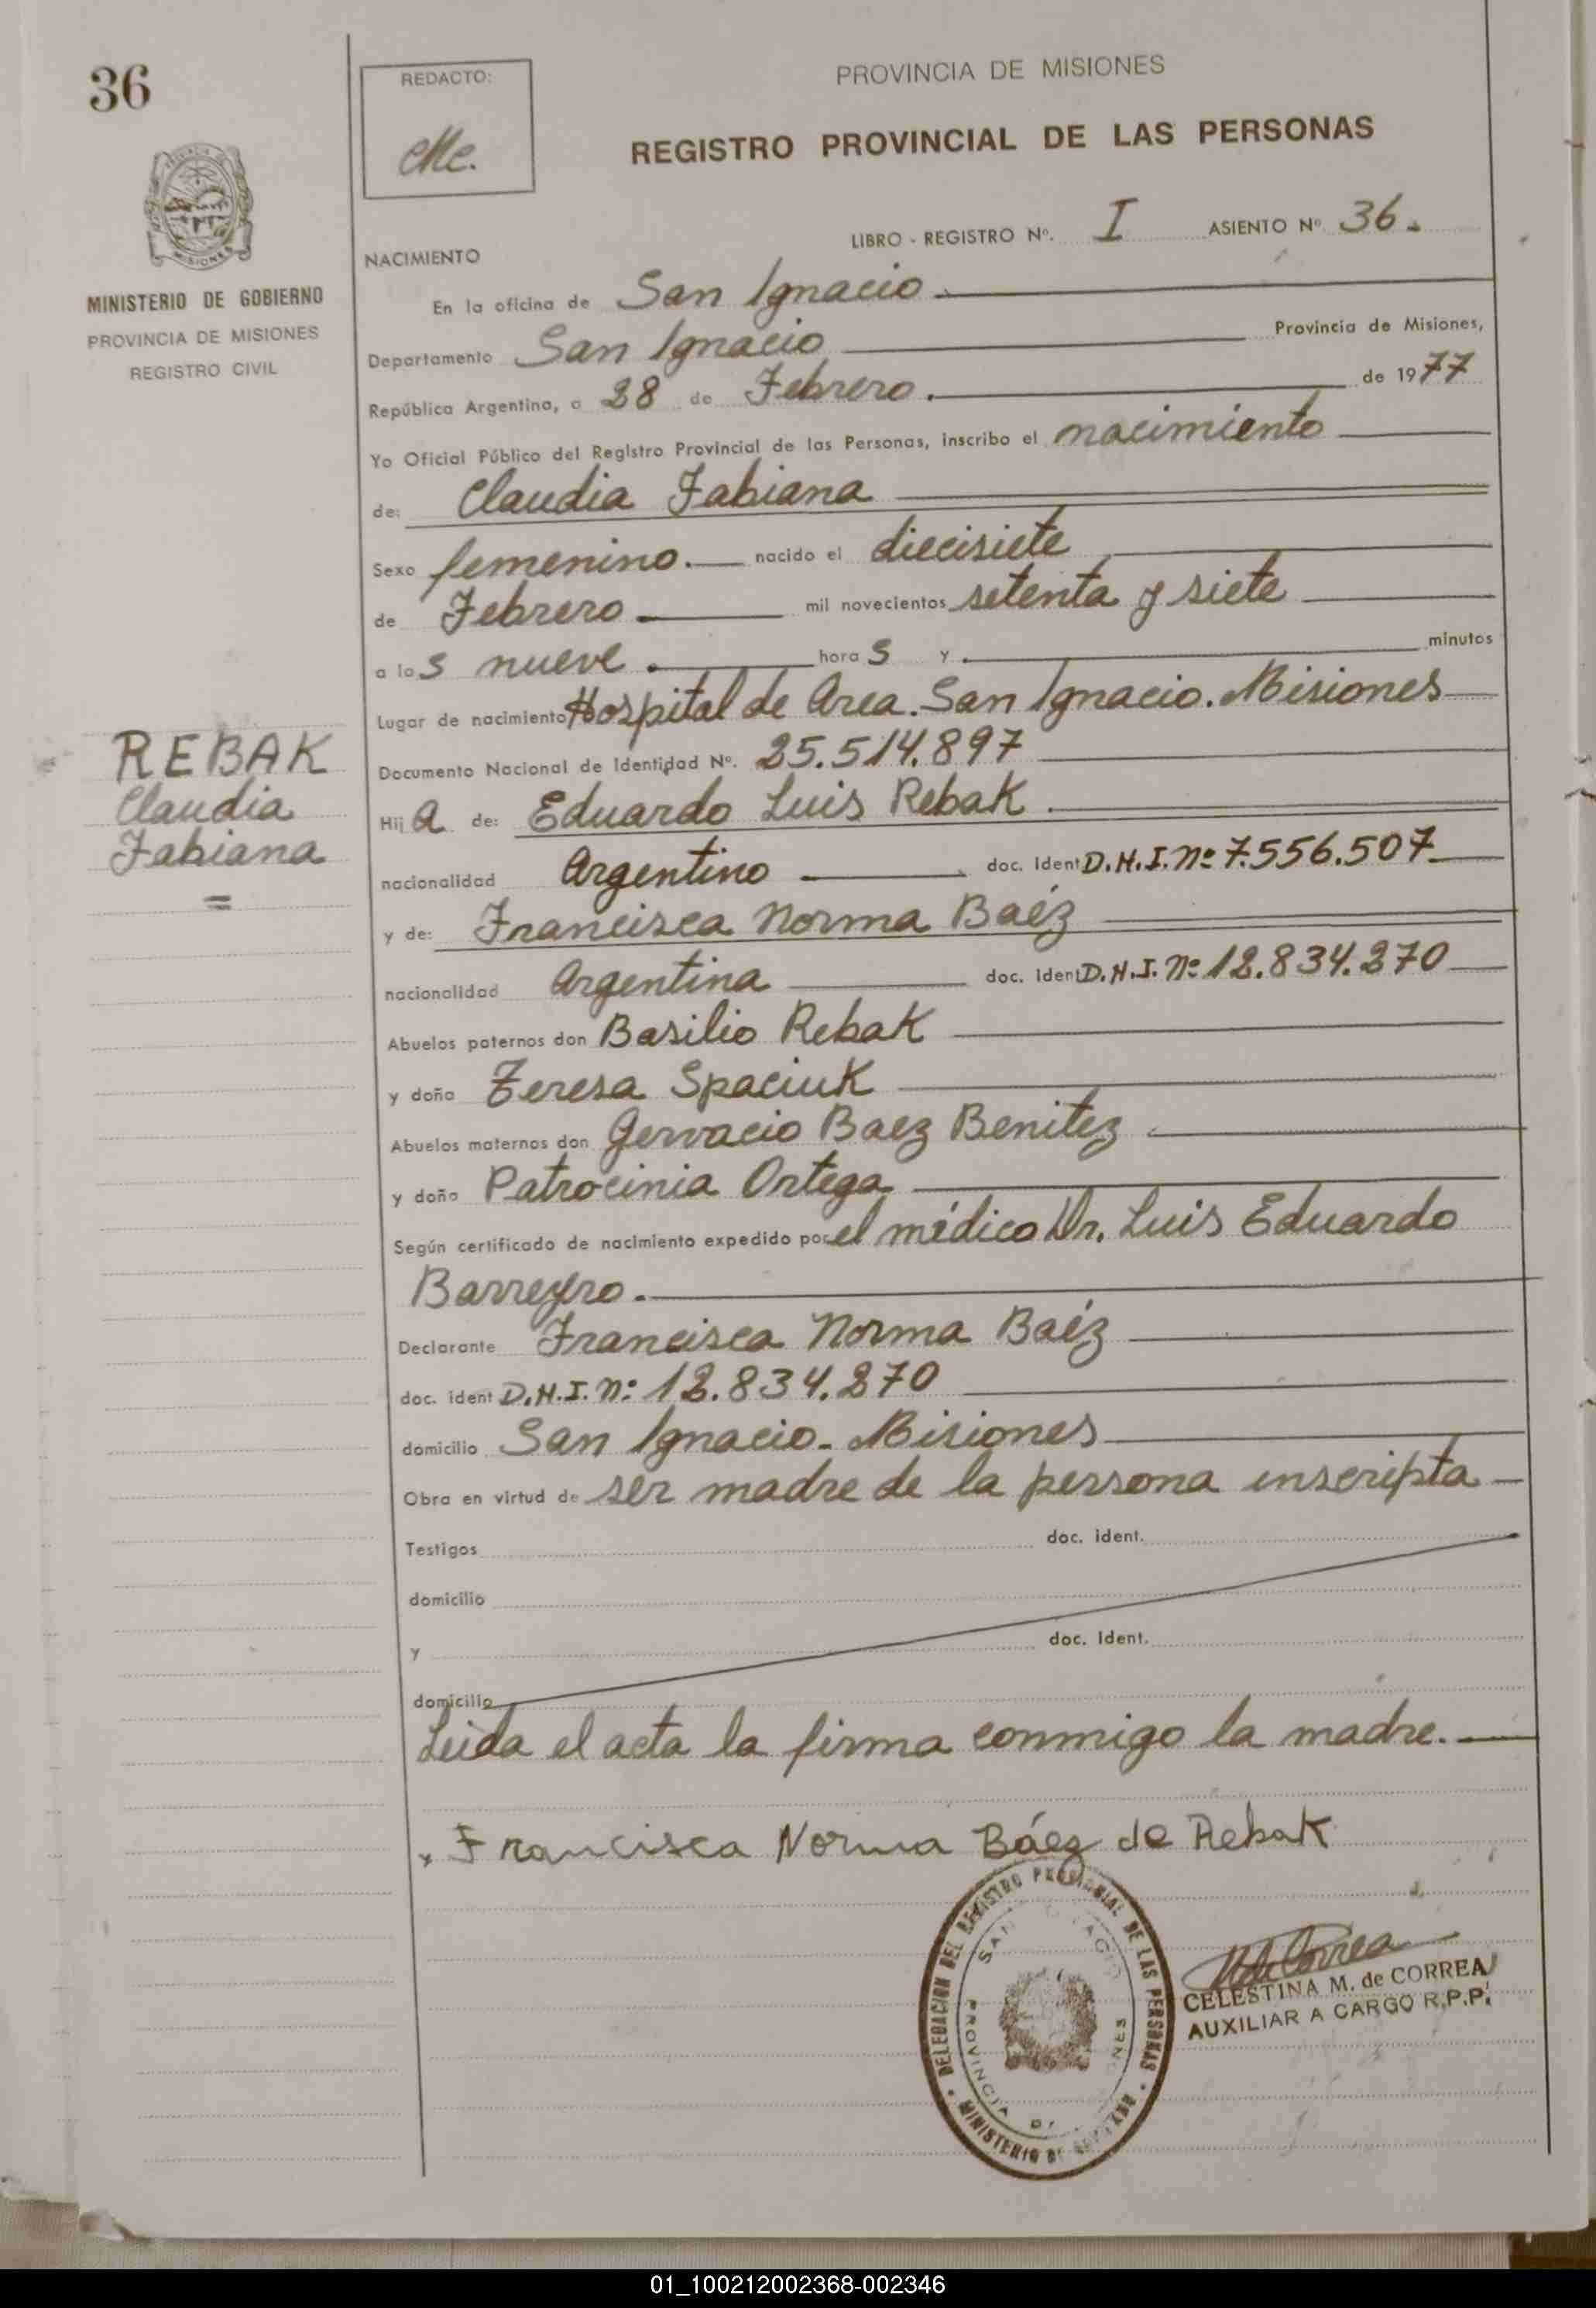 36
REDACTO:
PROVINCIA DE MISIONES
REGISTRO PROVINCIAL DE LAS PERSONAS
LIBRO - REGISTRO Nº. I ASIENTO Nº 36.
MISIONES
MINISTERIO DE GOBIERNO
PROVINCIA DE MISIONES
REGISTRO CIVIL
NACIMIENTO
En la oficina de San Ignacio.
Departamento San Ignacio Provincia de Misiones,
República Argentina, a 28 de Febrero. de 1977
Yo Oficial Público del Registro Provincial de las Personas, inscribo el nacimiento
de: Claudia Fabiana
Sexo femenino. nacido el diecisiete
de Febrero mil novecientos setenta y siete
a las nueve. horas y minutos
Lugar de nacimiento Hospital de Area. San Ignacio. Misiones
Documento Nacional de Identidad Nº. 25.514.897
REBAK
Claudia
Fabiana
Hija de: Eduardo Luis Rebak.
nacionalidad Argentino doc. ident D.N.I. Nº 7.556.507
y de: Francisca Norma Baéz
nacionalidad Argentina doc. ident D.N.I. Nº 12.834.270
Abuelos paternos don Basilio Rebak
y doña Teresa Spaciuk
Abuelos maternos don Gervacio Baez Benitez
y doña Patrocinia Ortega
Según certificado de nacimiento expedido por el médico Dr. Luis Eduardo
Barreyro.
Declarante Francisca Norma Baéz
doc. ident D.N.I. Nº 12.834.270
domicilio San Ignacio - Misiones
Obra en virtud de ser madre de la persona inscripta
Testigos doc. ident.
domicilio
y doc. ident.
domicilio
Leida el acta la firma conmigo la madre.
x Francisca Norma Báez de Rebak
DELEGACION DEL REGISTRO PROVINCIAL DE LAS PERSONAS
MINISTERIO DE
PROVINCIA DE
CELESTINA M. de CORREA
AUXILIAR A CARGO R.P.P.
01_100212002368-002346